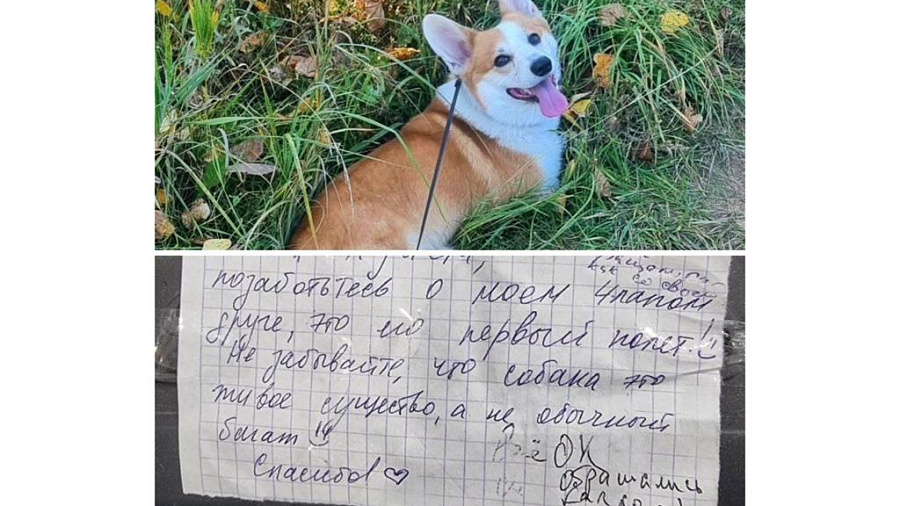 позаботьтесь о моем 4лапом
как со своей
друге, это его первый полет!!
Не забывайте, что собака это
живое существо, а не обычный
багаж!!
Спасибо! ♡
Всё ОК
обращались